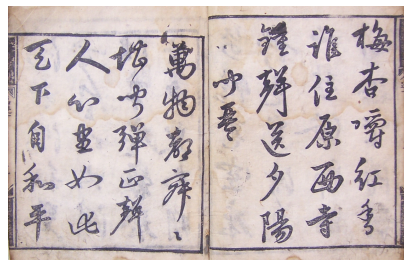 梅杏嚼紅香
誰住原西寺
鐘聲送夕陽
聞琴
萬物都寂〻
堪聞彈正聲
人心盡如此
天下自和平